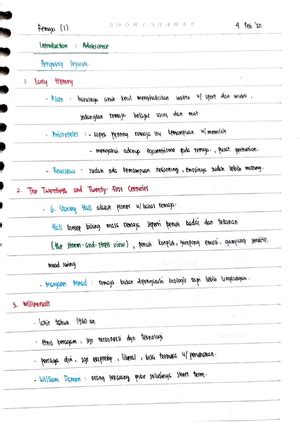 Remaja (1)
4 Feb '20
Introduction : Adolescence
Perspektif Sejarah
1. Early History
- Plato : harusnya anak kecil menghabiskan waktu u/ sport dan musik,
sedangkan remaja belajar sains dan mat
- Aristoteles : - aspek penting remaja itu kemampuan u/ memilih
- mengakui adanya egosentrisme pada remaja, pusat perhatian.
- Rousseau : sudah ada kemampuan reasoning, emosinya sudah lebih matang.
2. The Twentieth and Twenty-First Centuries
- G. Stanley Hall adalah pioneer u/ kajian remaja.
Hall konsep bilang masa remaja seperti penuh badai dan tekanan
(the storm-and-stress view), penuh konflik, gampang emosi, gampang sensitif.
mood swing
- Margaret Mead : remaja bukan dipengaruhi biologis tapi lebih lingkungan.
3. Millennials
- lahir tahun 1980 an
- etnis beragam, koneksi dgn teknologi
- percaya diri, ekspresif, liberal, bisa terbuka u/ perubahan.
- William Damon : orang sekarang punya short term.